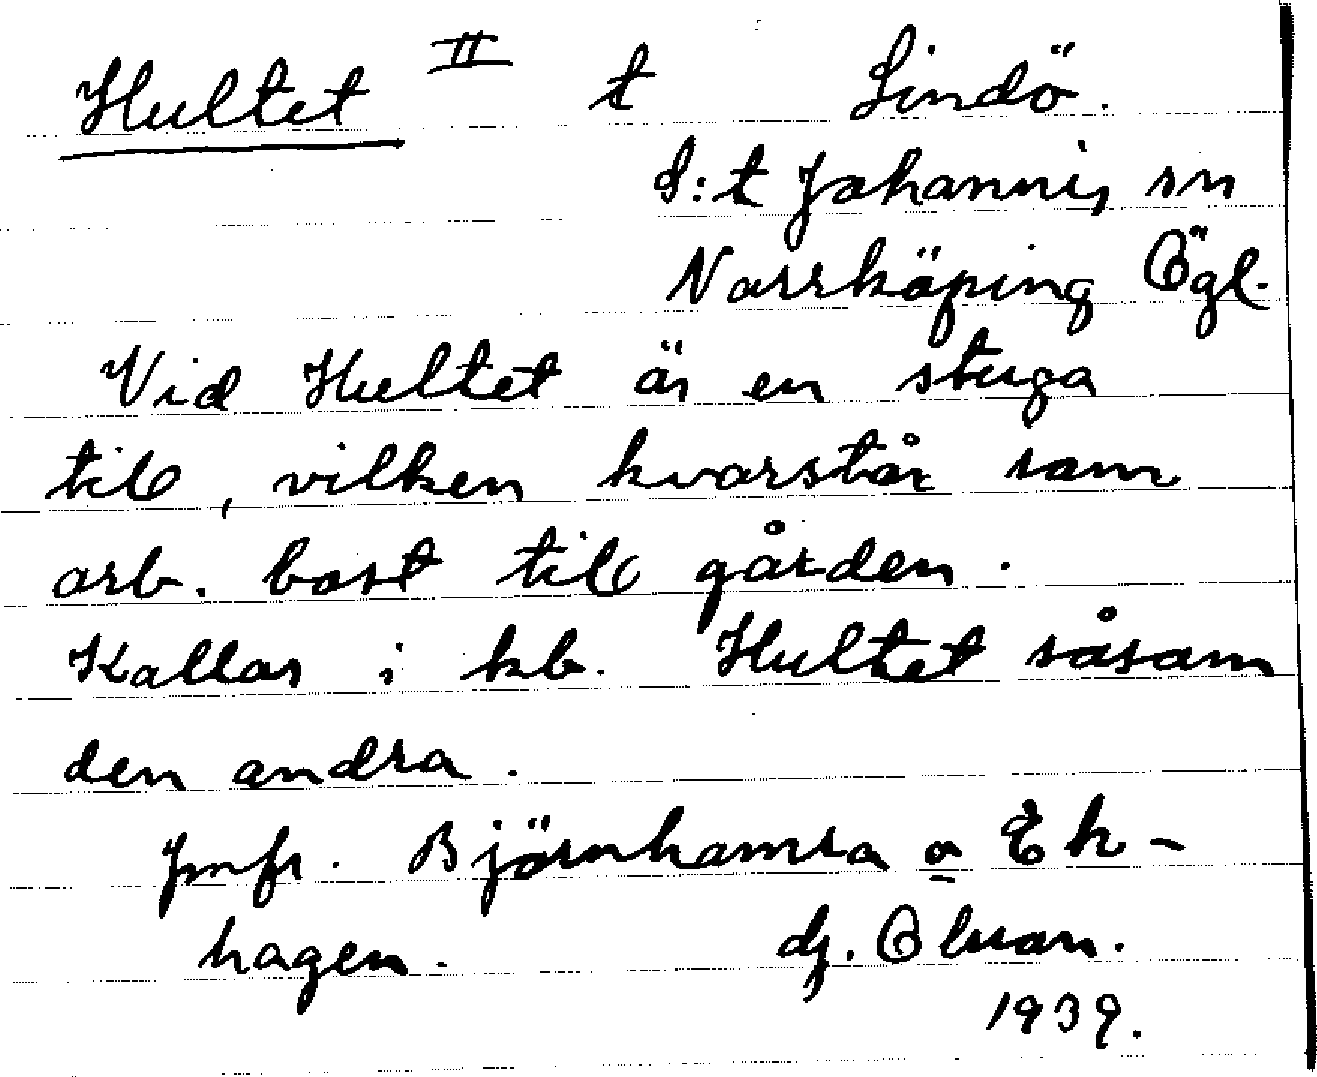 Hultet II t Lindö.
S:t Johannis sn
Norrköping Ögl.
Vid Hultet är en stuga
till, vilken kvarstår som
arb. bost till gården.
Kallas i kb. Hultet såsom
den andra.
Jmfr. Björnhamra o Ek-
hagen.
1939.